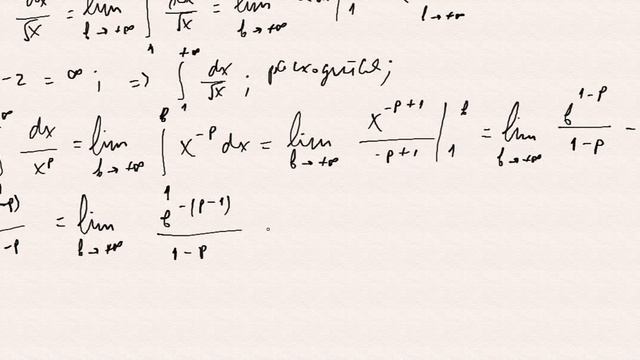 dx/√x = lim b→+∞ ∫ 1 /√x = lim b→+∞ | 1 b→+∞
-2 = ∞ ; => ∫ 1 +∞ dx/√x ; расходится;
∞ dx/x^p = lim b→+∞ ∫ 1 b x^-p dx = lim b→+∞ x^-p+1/-p+1 | 1 b = lim b→+∞ b^1-p/1-p -
-p = lim b→+∞ b^-(p-1)/1-p .